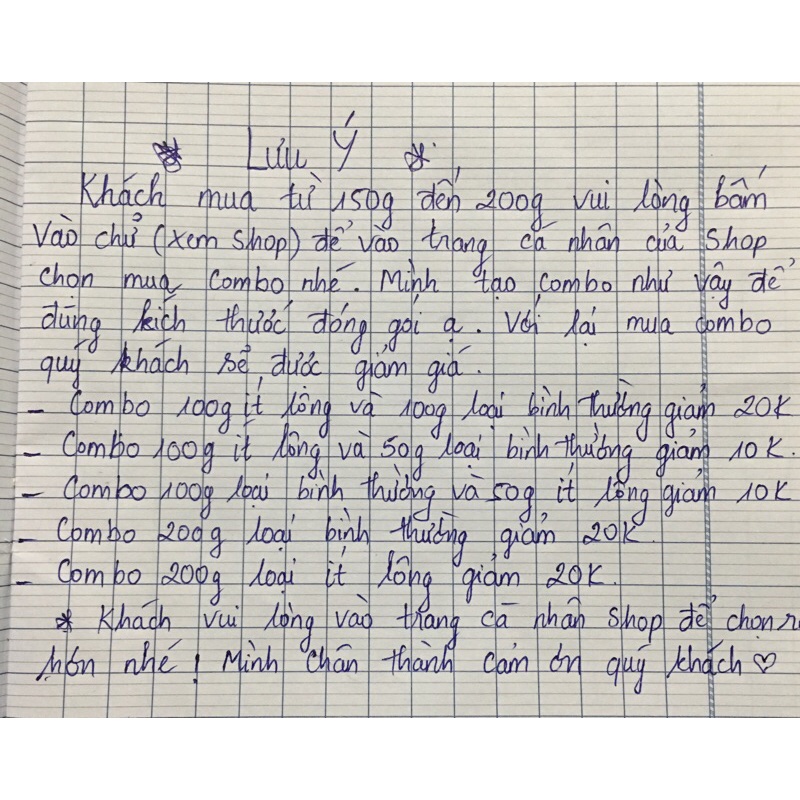 * Lưu Ý *
Khách mua từ 150g đến 200g vui lòng bấm
vào chử (xem shop) để vào trang cá nhân của shop
chọn mua combo nhé. Mình tạo combo như vậy để
đúng kích thước đóng gói ạ. Với lại mua combo
quý khách sẽ được giảm giá.
- Combo 100g ít lông và 100g loại bình thường giảm 20K
- Combo 100g ít lông và 50g loại bình thường giảm 10K.
- Combo 100g loại bình thường và 50g ít lông giảm 10K
- Combo 200g loại bình thường giảm 20K.
- Combo 200g loại ít lông giảm 20K.
* Khách vui lòng vào trang cá nhân shop để chọn
hón nhé! Mình chân thành cảm ơn quý khách ♡